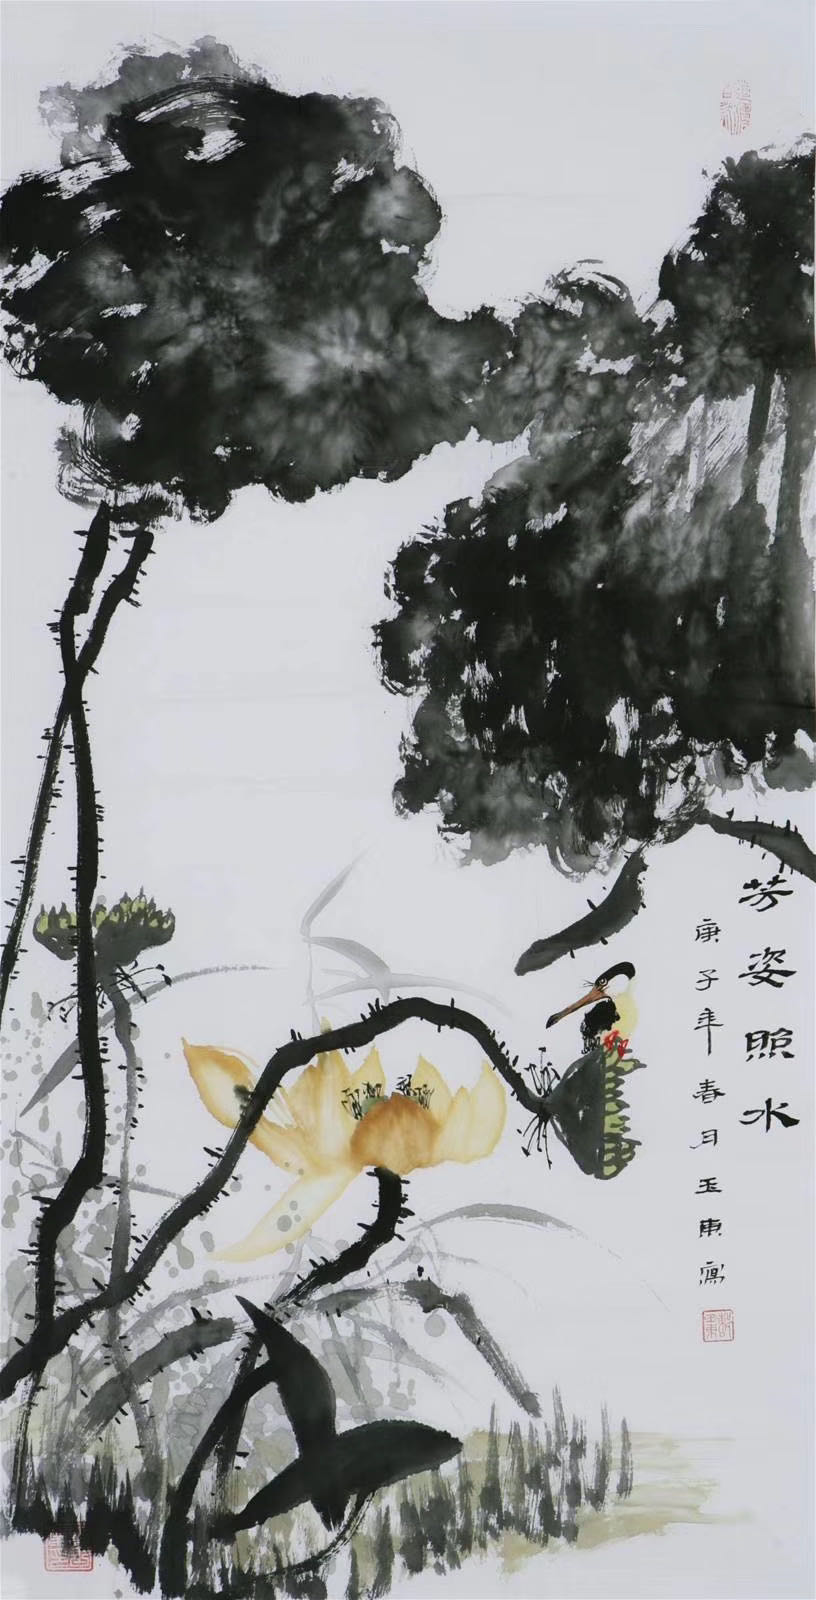 芳姿照水
庚子年春月玉東寫